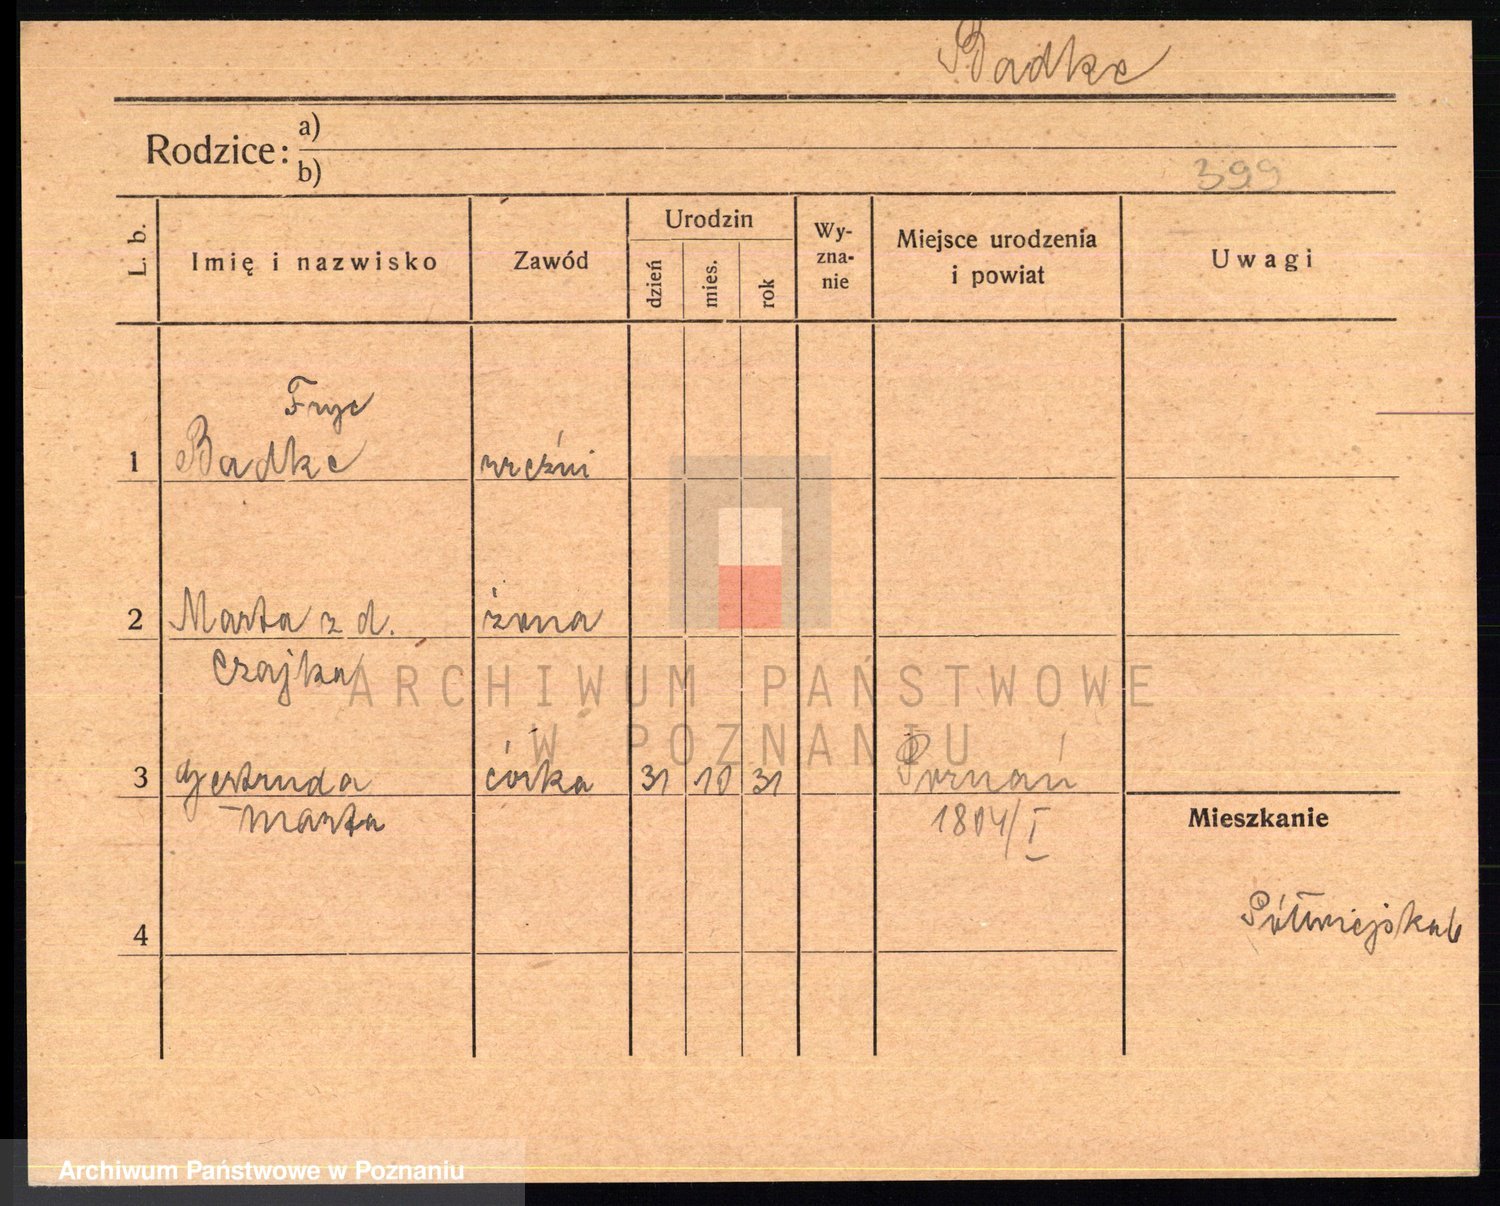 Badke
Rodzice: a)
b)
399
L. b.
Imię i nazwisko
Zawód
Urodzin
dzień
mies.
rok
Wy-
zna-
nie
Miejsce urodzenia
i powiat
Uwagi
Fryc
1 Badke rzeźni
2 Marta z d. żona
Czajka
ARCHIWUM PAŃSTWOWE
W POZNANIU
3 Gertruda córka 31 10 31 Poznań
Marta 1804/I
Mieszkanie
Półwiejska 6
4
Archiwum Państwowe w Poznaniu